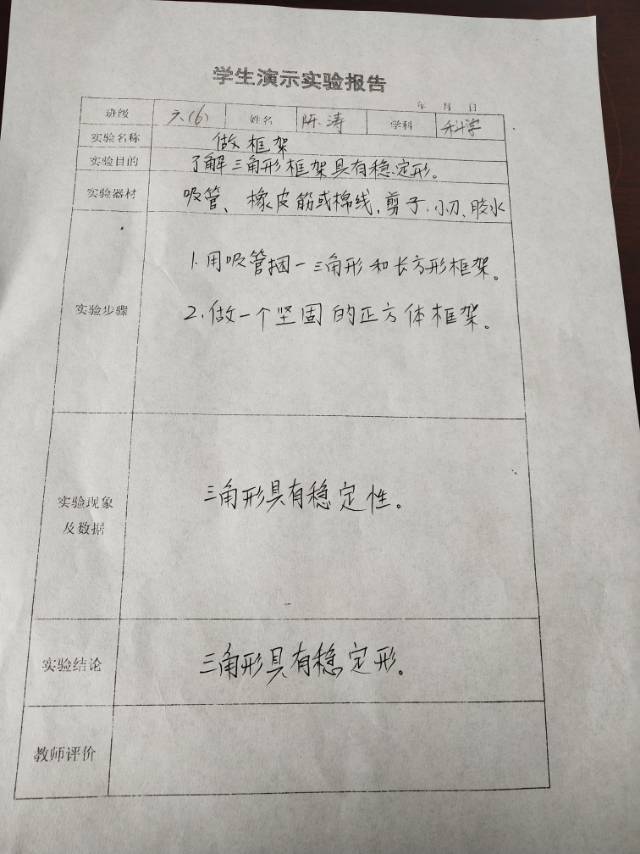 学生演示实验报告
年 月 日
班级 六(6) 姓名 陈涛 学科 科学
实验名称 做框架
实验目的 了解三角形框架具有稳定形。
实验器材 吸管、橡皮筋或棉线,剪子.小刀、胶水
实验步骤
1.用吸管捆一三角形和长方形框架。
2.做一个坚固的正方体框架。
实验现象
及数据
三角形具有稳定性。
实验结论 三角形具有稳定形。
教师评价